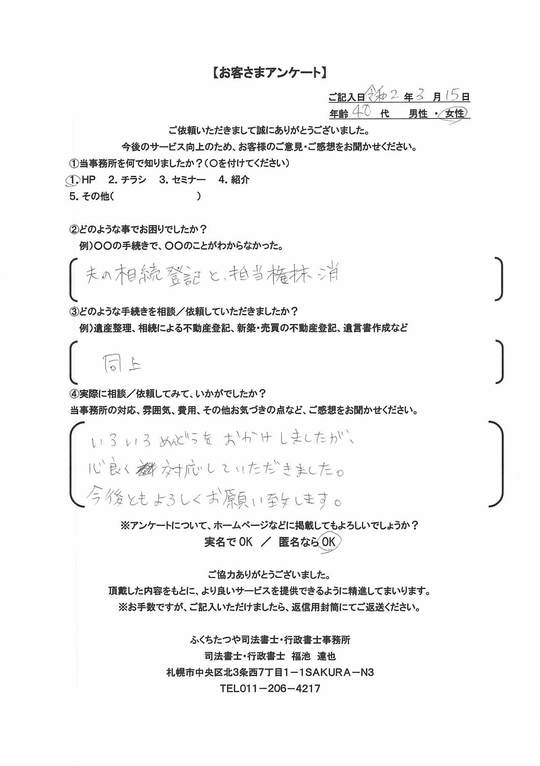 【お客さまアンケート】
ご記入日 令和2年3月15日
年齢 40代 男性・女性
ご依頼いただきまして誠にありがとうございました。
今後のサービス向上のため、お客様のご意見・ご感想をお聞かせください。
①当事務所を何で知りましたか?(○を付けてください)
1. HP 2. チラシ 3. セミナー 4. 紹介
5. その他( )
②どのような事でお困りでしたか?
例)○○の手続きで、○○のことがわからなかった。
夫の相続登記と、担当権抹消
③どのような手続きを相談/依頼していただきましたか?
例)遺産整理、相続による不動産登記、新築・売買の不動産登記、遺言書作成など
同上
④実際に相談/依頼してみて、いかがでしたか?
当事務所の対応、雰囲気、費用、その他お気づきの点など、ご感想をお聞かせください。
いろいろめんどうをおかけしましたが、
心良く対応していただきました。
今後ともよろしくお願い致します。
※アンケートについて、ホームページなどに掲載してもよろしいでしょうか?
実名でOK / 匿名ならOK
ご協力ありがとうございました。
頂戴した内容をもとに、より良いサービスを提供できるように精進してまいります。
※お手数ですが、ご記入いただけましたら、返信用封筒にてご返送ください。
ふくちたつや司法書士・行政書士事務所
司法書士・行政書士 福池 達也
札幌市中央区北3条西7丁目1-1SAKURA-N3
TEL011-206-4217